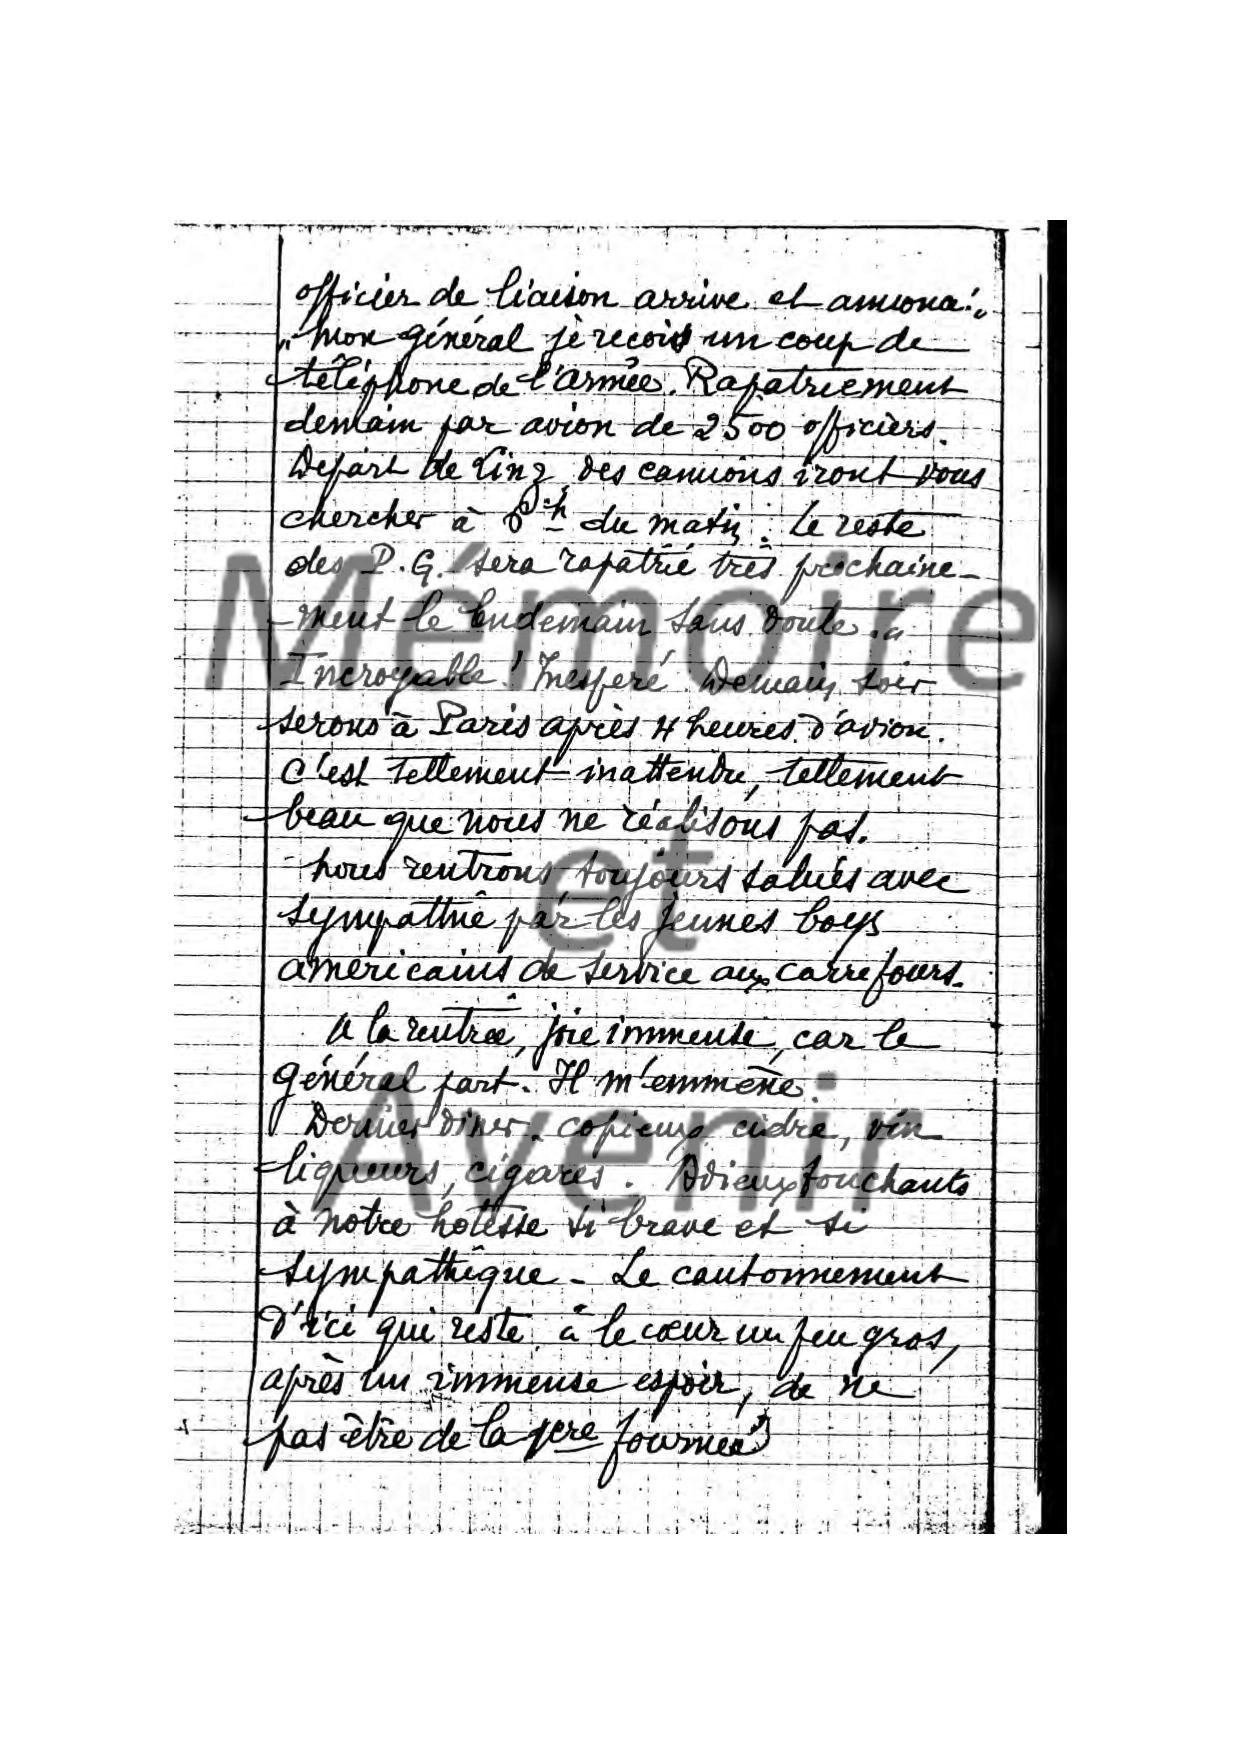 officier de liaison arrive et annonça:
"Mon général je reçois un coup de
téléphone de l'armée. Rapatriement
demain par avion de 2500 officiers.
Départ de Linz des camions iront vous
chercher à 8h du matin. Le reste
des P.G. sera rapatrié très prochaine-
ment le lendemain sans doute."
Incroyable! Inespéré. Demain soir
serons à Paris après 4 heures d'avion.
C'est tellement inattendu, tellement
beau que nous ne réalisons pas.
Nous rentrons toujours salués avec
sympathie par les jeunes boys
américains de service aux carrefours.
A la rentrée, joie immense, car le
général part. Il m'emmène.
Dernier diner. copieux cidre, vin
liqueurs, cigares. Adieux touchants
à notre hôtesse si brave et si
sympathique - Le cantonnement
d'ici qui reste à le cœur un peu gros,
après un immense espoir, de ne
pas être de la 1ère fournée
Mémoire
et
Avenir